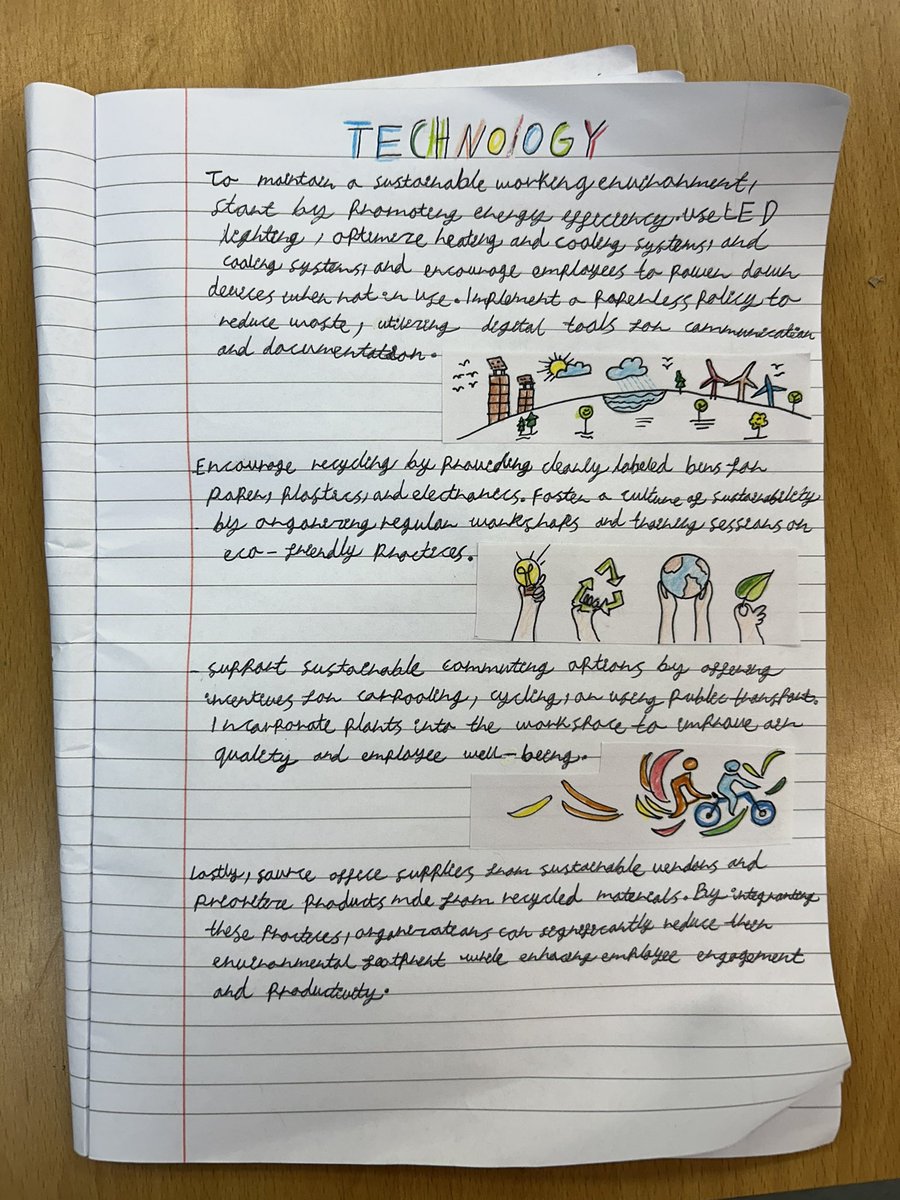 TECHNOLOGY
To maintain a sustainable working environment,
start by promoting energy efficiency. Use LED
lighting, optimize heating and cooling systems, and
cooling systems, and encourage employees to power down
devices when not in use. Implement a paperless policy to
reduce waste, utilizing digital tools for communication
and documentation.
Encourage recycling by providing clearly labeled bins for
paper, plastics, and electronics. Foster a culture of sustainability
by organizing regular workshops and training sessions on
eco-friendly practices.
- Support sustainable commuting options by offering
incentives for carpooling, cycling, or using public transport.
Incorporate plants into the workspace to improve air
quality and employee well-being.
Lastly, source office supplies from sustainable vendors and
prioritize products mde from recycled materials. By integrating
these practices, organizations can significantly reduce their
environmental footprint while enhacing employee engagement
and productivity.